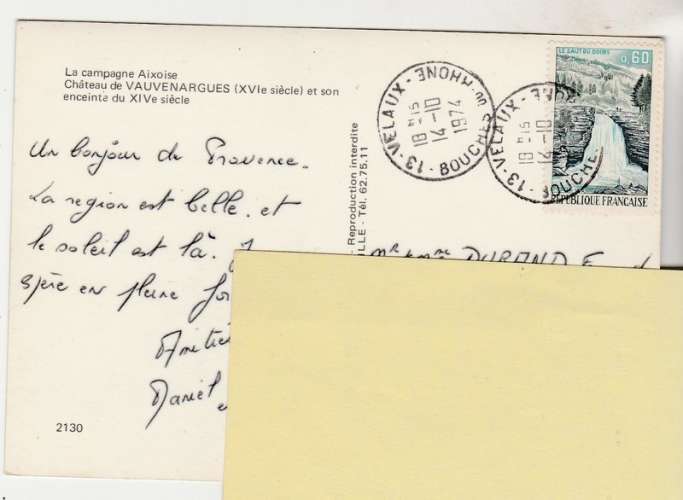 La campagne Aixoise
Château de VAUVENARGUES (XVIe siècle) et son
enceinte du XIVe siècle
Un bonjour de Provence.
La region est belle et
le soleil est là. J
en pleine for
Amitié
Daniel
2130
Reproduction interdite
ILLE - Tél. 62.75.11
13 - VELAUX - BOUCHES DU RHONE
18H15
14-10
1974
13 - VELAUX - BOUCHE RHONE
18H15
14-10
LE SAUT DU DOUBS
0,60
REPUBLIQUE FRANCAISE
Mr & Mme DURAND